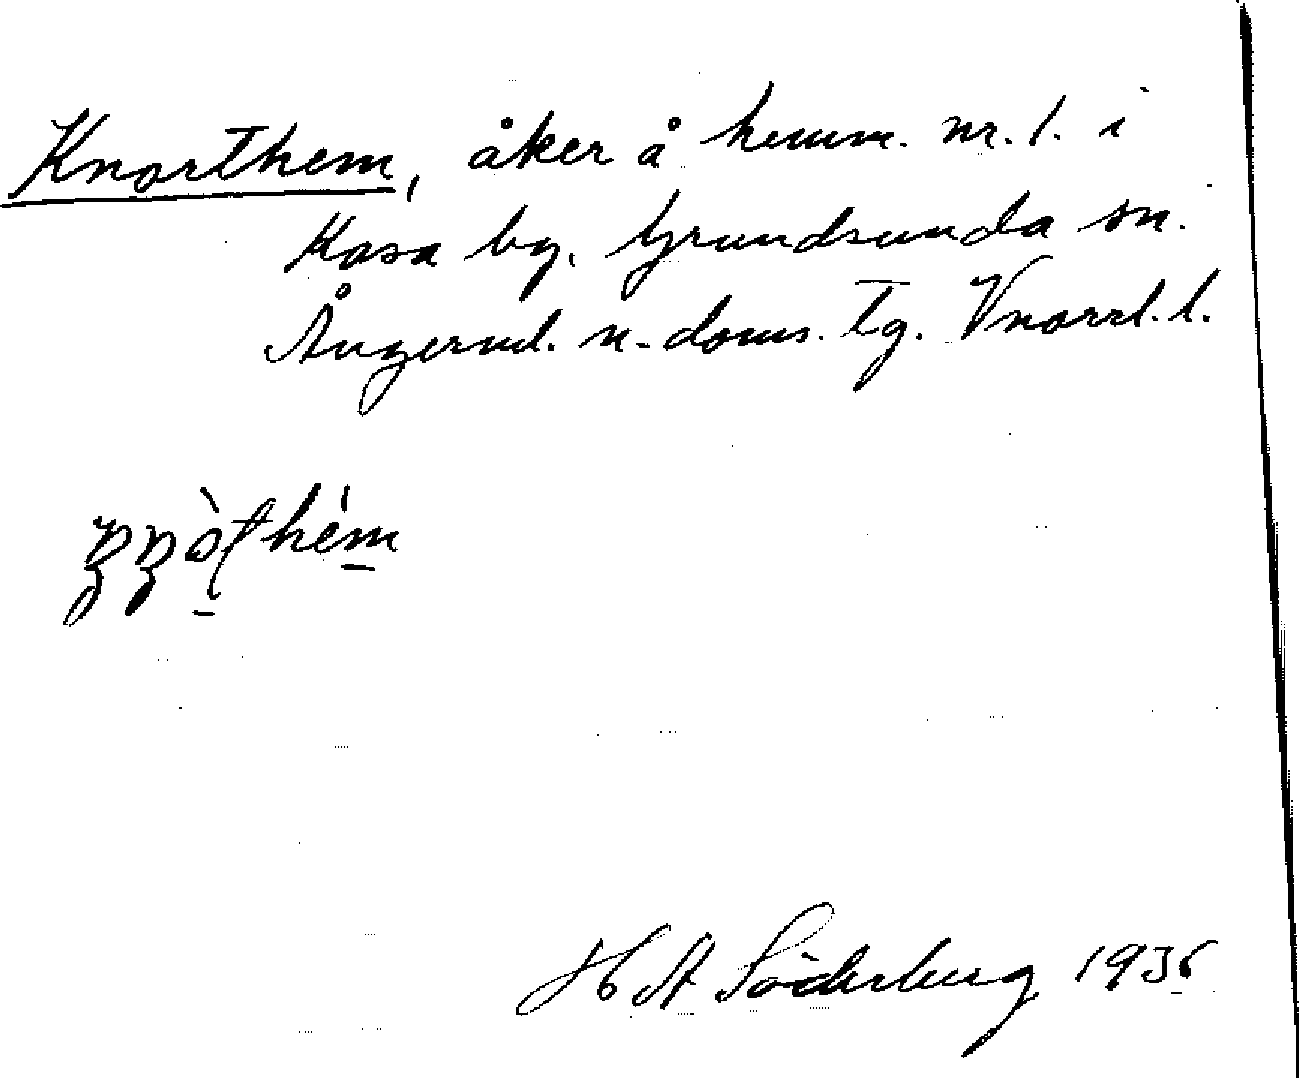 Knorthem, åker å hemm. nr. 1. i
Kasa by. Grundsunda sn.
Ångermd. n. doms. tg. Vnorrl. l.
H A Söderberg 1936